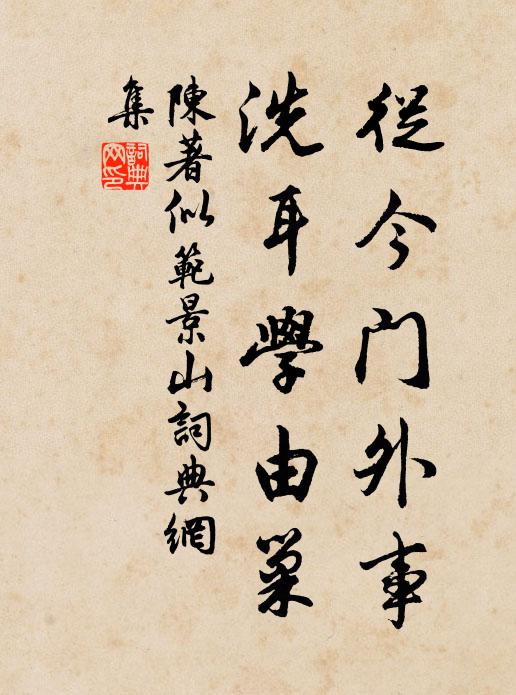 從今門外事
洗耳學由巢
陳著似範景山詞典網
集
詞典網印